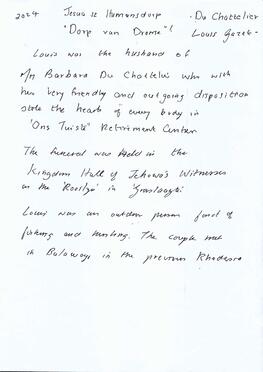 2024 Jesus se Humansdorp - Du Chattelier
"Dorp van Drome"! Louis Gazek -
Louis was the husband of
Mrs Barbara Du Chattelier who with
her very friendly and outgoing disposition
stole the hearts of every body in
"Ons Tuiste" Retirement Center
The funeral was Held in the
Kingdom Hall of Jehowa's Witnesses
in the in
Louis was an outdoor person fond of
fishing and hunting. The couple met
in Bulawayo in the previous Rhodesia